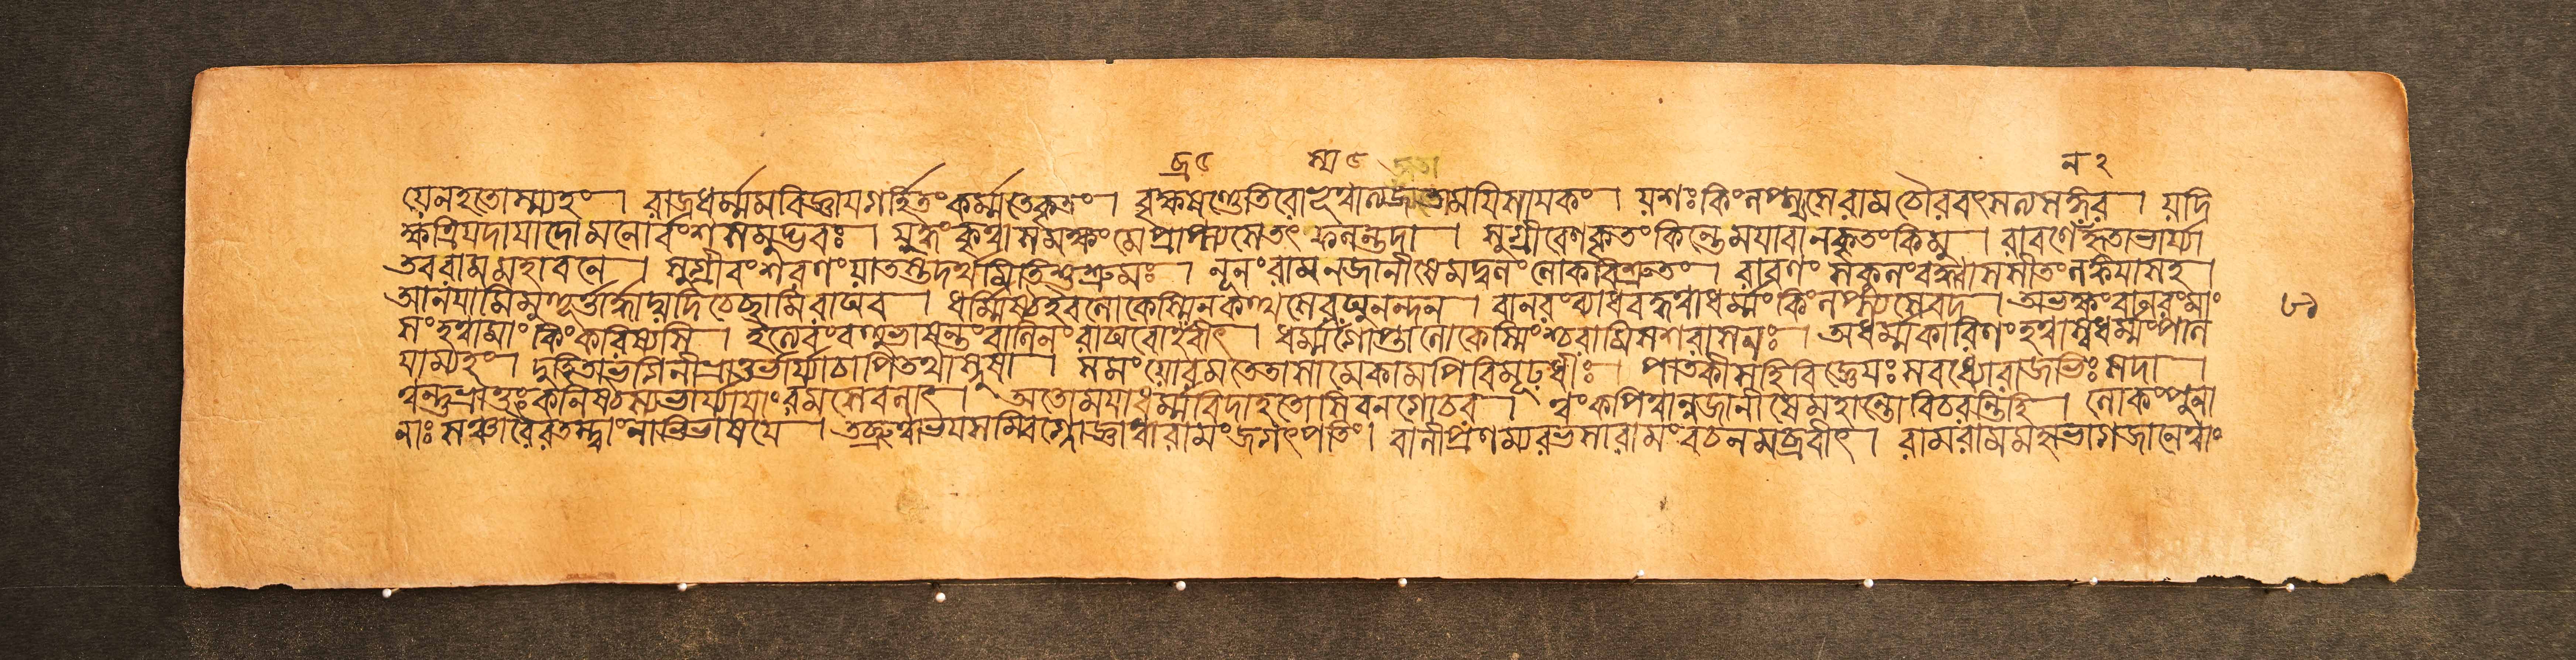 যেনহতোস্ম্যহং । রাজধর্ম্মমবিজ্ঞাযগর্হিতংকর্ম্মতেকৃতং । বৃক্ষষণ্ডেতিরোভূত্বাত্যজতামযিসাযকং । যশঃকিংলপ্স্যসেরামচৌরবৎ । যদি
ক্ষত্রিযদাযাদোমনোর্বংশসমুদ্ভবঃ । যুদ্ধংকৃত্বাসমক্ষংমেপ্রাপ্স্যসেতৎফলন্তদা । সুগ্রীবেণকৃতংকিন্তেমযাবানকৃতংকিমু । রাবণেনহৃতাভার্য্যা
তবরামমহাবনে । সুগ্রীবংশরণংযাতস্তদর্থমিতিশুশ্রুমঃ । নূনংরামনজানীষেমদ্বলংলোকবিশ্রুতং । রাবণংসকুলংবদ্ধ্বাসসীতংলঙ্কযাসহ ।
আনযামিমুহূর্ত্তার্দ্ধাদ্যদিচেচ্ছামিরাঘব । ধর্ম্মিষ্ঠইবলোকেস্মিনকথ্যসেরঘুনন্দন । বানরংব্যাধবদ্ধত্বাধর্ম্মংকিংলপ্স্যসেবদ । অভক্ষ্যংবানরংমাং
সংহত্বামাংকিংকরিষ্যসি । ইত্যেবংবহুভাষন্তংবালিনংরাঘবোব্রবীৎ । ধর্ম্মগোপ্তালোকেস্মিংশ্চরামিসশরাসনঃ । অধর্ম্মকারিণংহত্বাসদ্ধর্ম্মংপাল
যাম্যহং । দুহিতাভগিনীভ্রাতুর্ভার্য্যাচাপিতথাস্নুষা । সমংযোরমতেতাসামেকামপিবিমূঢ়ধীঃ । পাতকীসহিবিজ্ঞেযঃসবধ্যোরাজভিঃসদা ।
ত্বন্তুভ্রাতুঃকনিষ্ঠস্যভার্য্যাযাংরমসেবলাৎ । অতোমযাধর্ম্মবিদাহতোসিবনগোচর । ত্বংকপিত্বান্নজানীষেমহান্তোবিচরন্তিহি । লোকংপুনা
নাঃসঞ্চারৈরতস্ত্বাংনাভিভাষযে । তচ্ছ্রুত্বাভযসম্বিগ্নোজ্ঞাত্বারামংজগৎপতিং । বালীপ্রণম্যরভসারামংবচনমব্রবীৎ । রামরামমহাভাগজানেত্বাং